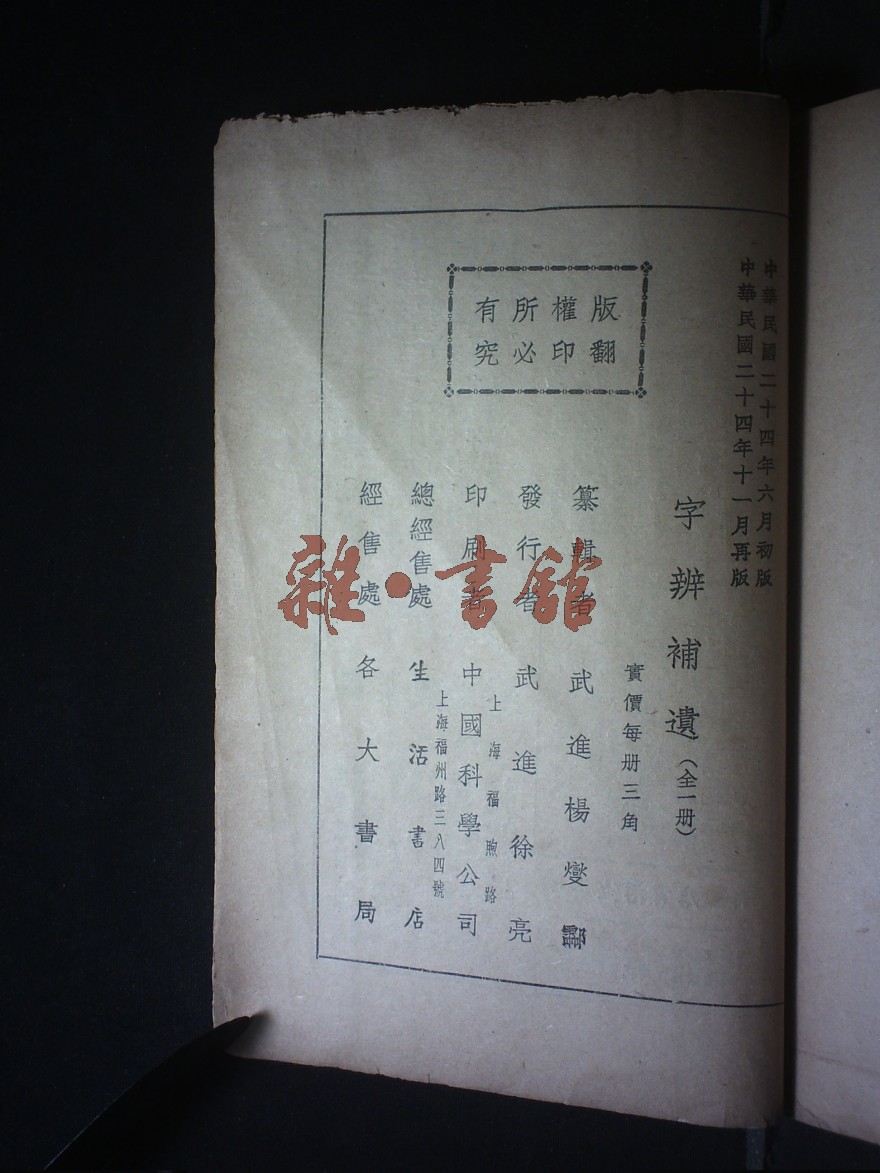 中華民國二十四年六月初版
中華民國二十四年十一月再版
字辨補遺（全一册）
實價每册三角
版權所有
翻印必究
纂輯者 武進楊燮
發行者 武進徐亮
上海福煦路
印刷者 中國科學公司
上海福州路三八四號
總經售處 生活書店
經售處 各大書局
雜·書館